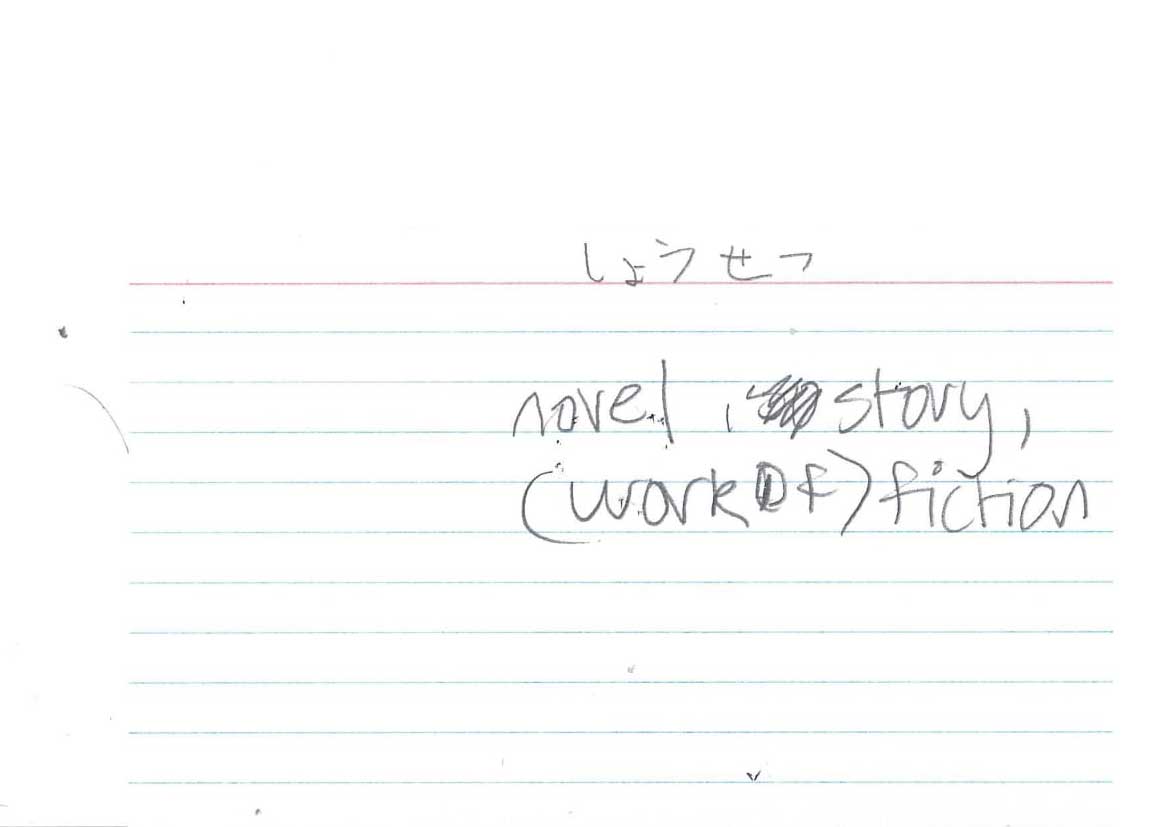 しょうせつ
novel, story,
(work of) fiction